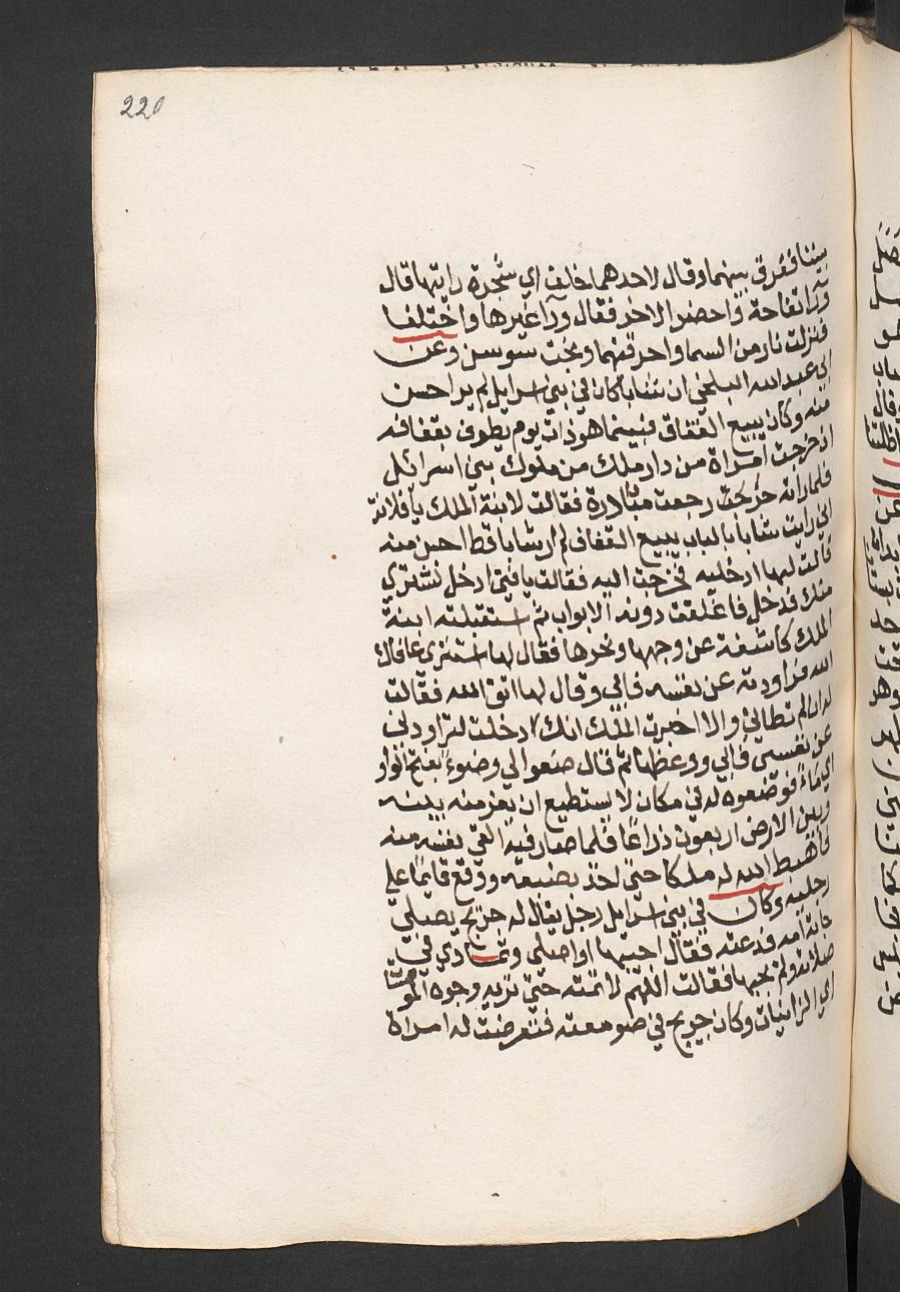 220
بيننا ففرق بينهما وقال لاحدهما خلف اي شجرة رايتها قال
ورا تفاحة واحضر الاخر فقال ورا غيرها واختلفا
فنزلت نار من السما واحرقتهما ونجت سوسن وعن
ابي عبد الله البلخي ان شابا كان في بني اسرايل لم ير احسن
منه وكان يبيع القفاف فبينما هو ذات يوم يطوف بقفافه
اذ خرجت امراة من دار ملك من ملوك بني اسرائل
فلما راته رجعت مبادرة فقالت لابنة الملك يا فلانة
اني رايت شابا بالباب يبيع القفاف لم ار شابا قط احسن منه
قالت لها ادخليه فخرجت اليه فقالت يا فتى ادخل نشتري
منك فدخل فاغلقت دونه الابواب ثم استقبلته ابنة
الملك كاشفة عن وجهها ونحرها فقال لها استتري عافاك
الله فراودته عن نفسه فابى وقال لها اتق الله فقالت
له ان لم تطاوعني والا اخبرت الملك انك دخلت لتراودني
عن نفسي فابى ووعظها ثم قال ضعوا لي وضوءا بفتح الواو
اي ماء فوضعوه له في مكان لا يستطيع ان يفر منه بينه
وبين الارض اربعون ذراعا فلما صار فيه القى نفسه منه
فاهبط الله له ملكا حتى اخذ بضبعه ووقع قايما على
رجليه وكان في بني اسرايل رجل يقال له جريج يصلي
جاته امه فدعته فقال اجيبها او اصلي وتمادى في
صلاته ولم يجبها فقالت اللهم لا تمته حتى تريه وجوه المومسات
اي الزانيات وكان جريج في صومعته فتعرضت له امراة